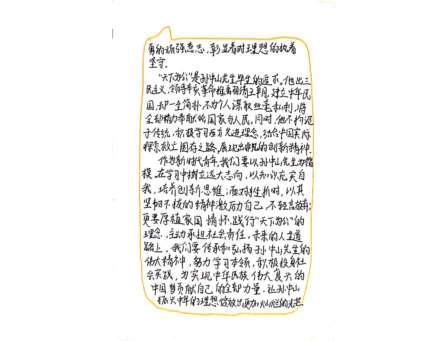 勇的顽强意志，彰显着对理想的执着
坚守。
“天下为公”是孙中山先生毕生的追求。他出三
民主义，领导辛亥革命推翻清王朝，建立中华民
国，却一生简朴，不为个人谋取丝毫私利，将
全部精力奉献给国家与人民，同时，他不拘泥
于传统，积极学习西方先进理念，结合中国实际
探索救亡图存之路，展现出非凡的创新精神。
作为新时代青年，我们要以孙中山先生为楷
模，在学习中树立远大志向，以知识充实自
我，培养创新思维；面对挫折时，以其
坚韧不拔的精神激励自己，不轻言放弃；
更要厚植家国情怀，践行“天下为公”的
理念，主动承担社会责任，未来的人生道
路上，我们要传承和弘扬孙中山先生的
伟大精神，努力学习本领，积极投身社
会实践，为实现中华民族伟大复兴的
中国梦贡献自己的全部力量，让孙中山
振兴中华的理想绽放出更加灿烂的光芒。